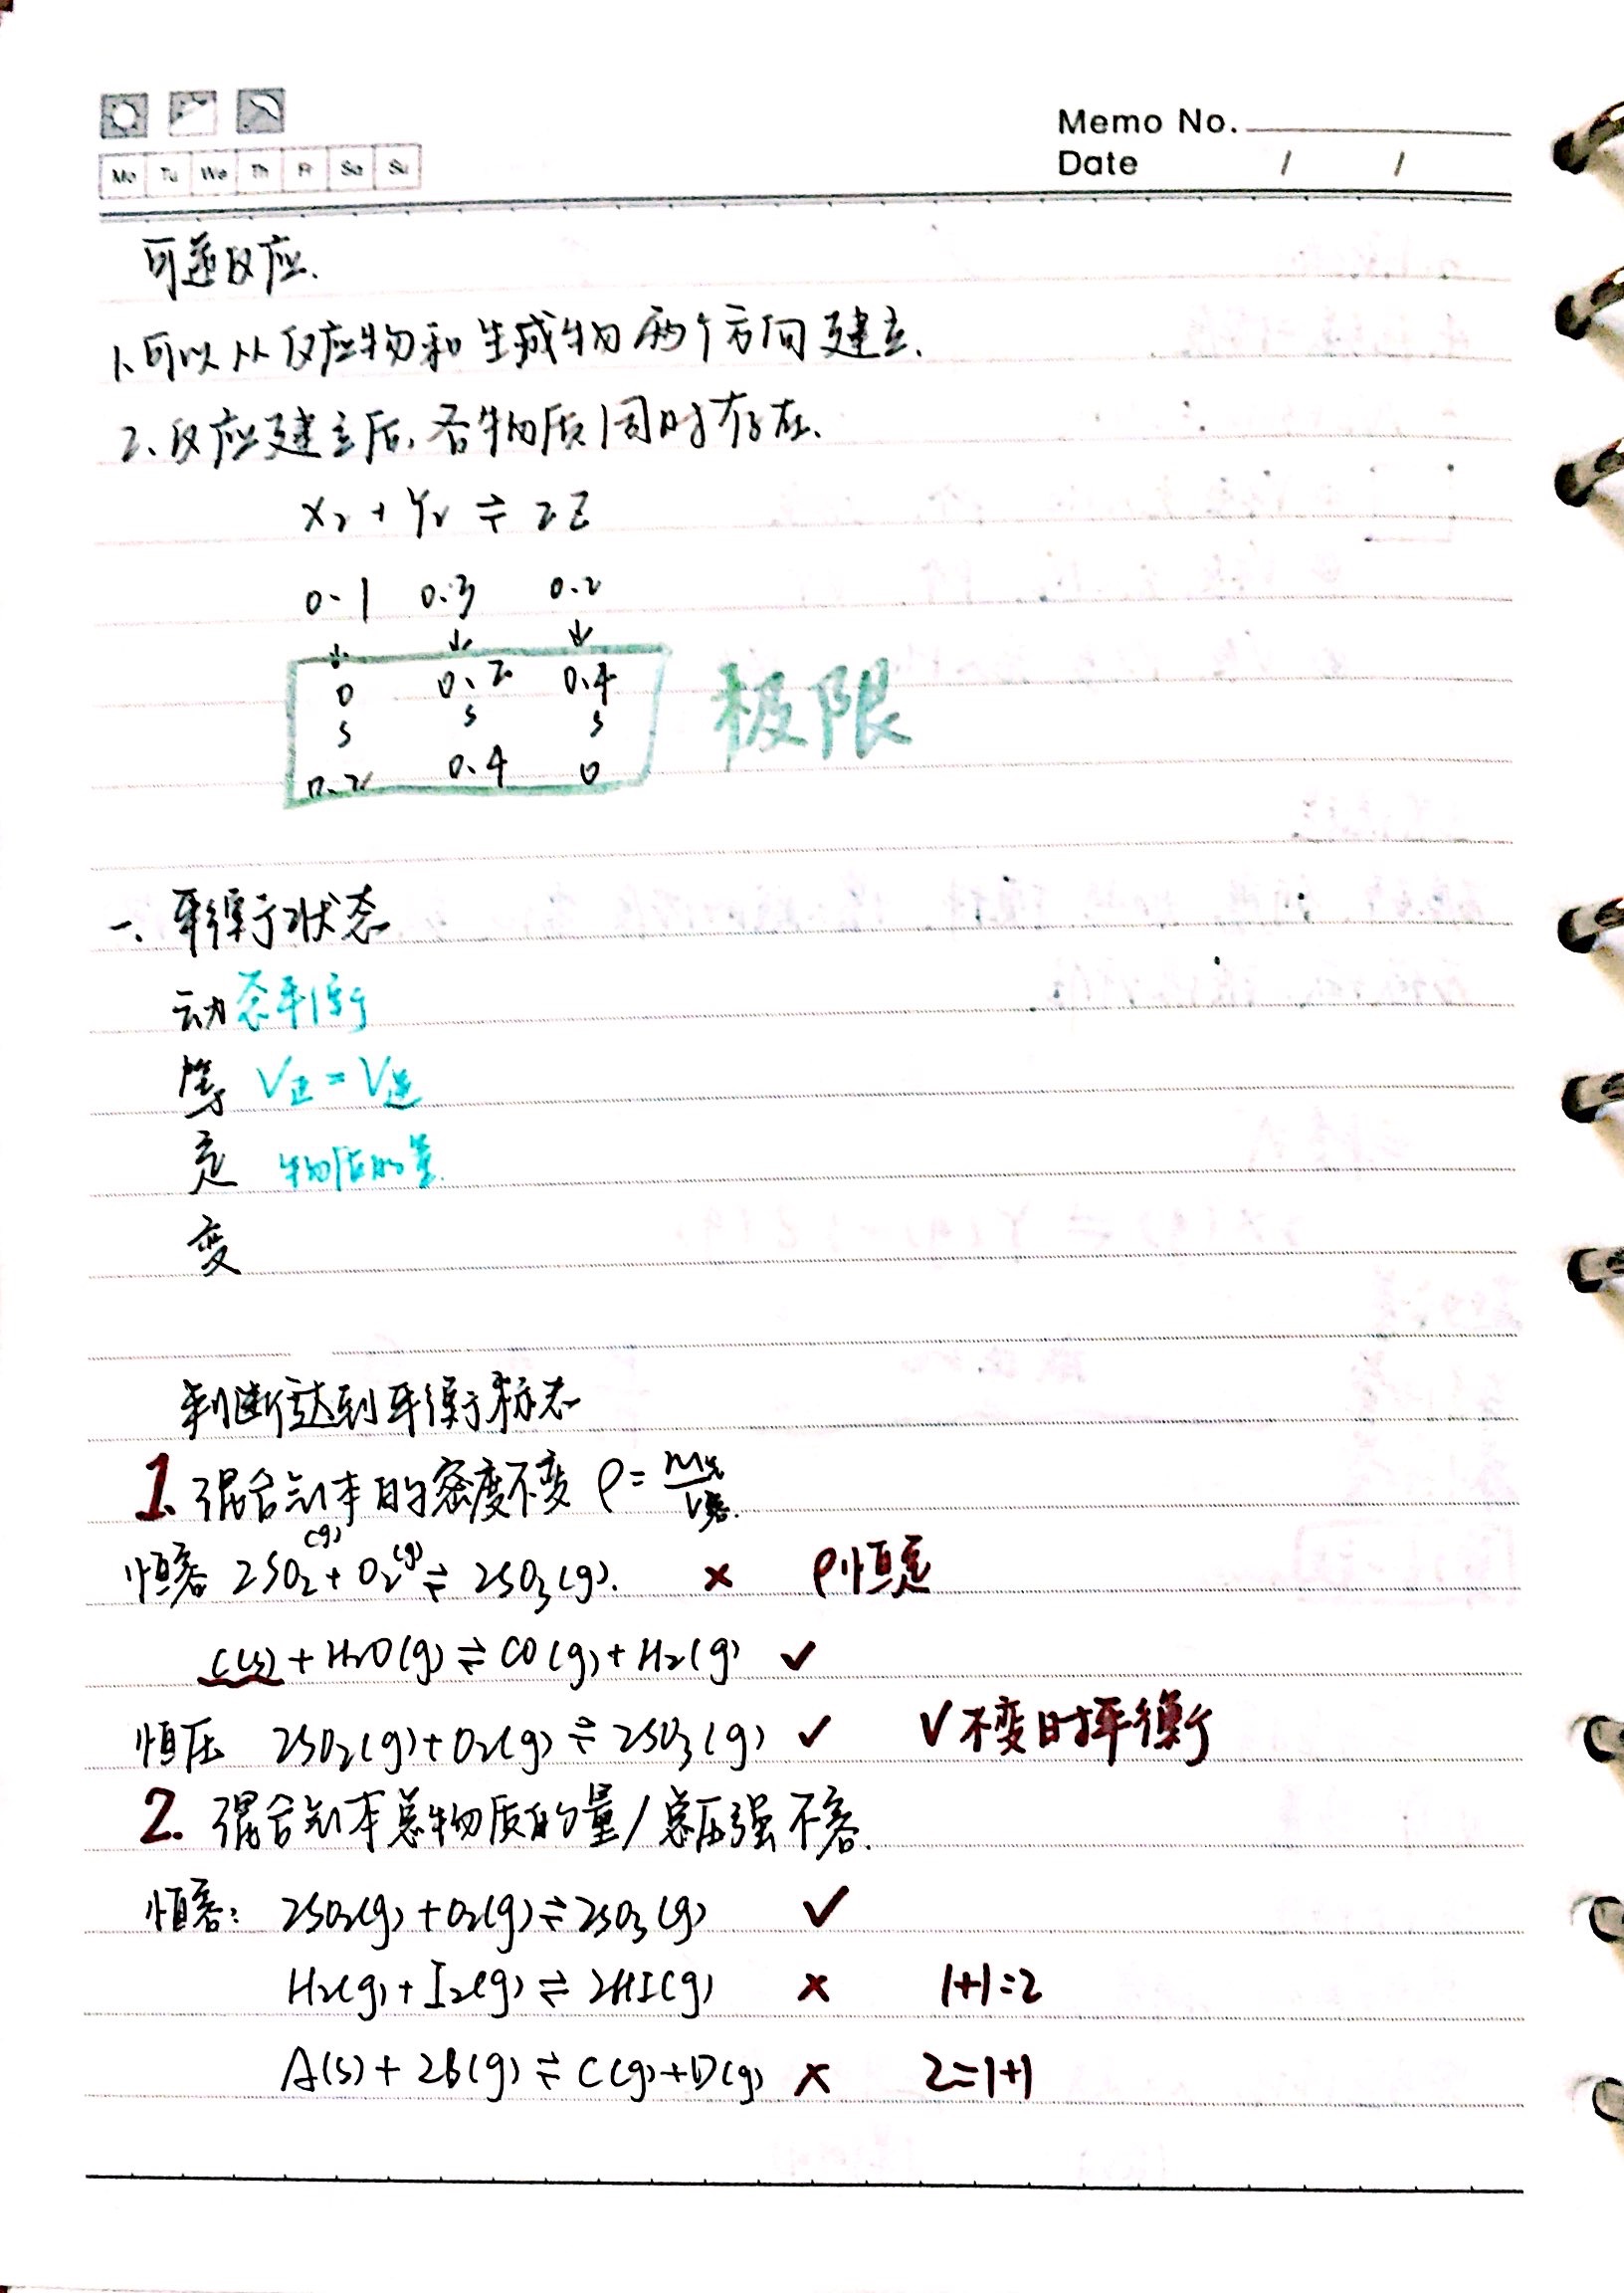 Mo Tu We Th Fr Sa Su
Memo No.
Date / /
可逆反应.
1、可以从反应物和生成物两个方向建立.
2、反应建立后,各物质同时存在.
X₂ + Y₂ ⇌ 2Z
0.1 0.3 0.2
↓ ↓ ↓
0 0.2 0.4
s s s
0.2 0.4 0
极限
一、平衡状态
动态平衡
等 V正 = V逆
定 物质的量
变
判断达到平衡标志
1. 混合气体的密度不变 ρ = m气/V容.
恒容 2SO₂(g) + O₂(g) ⇌ 2SO₃(g). × ρ恒定
C(s) + H₂O(g) ⇌ CO(g) + H₂(g) ✓
恒压 2SO₂(g) + O₂(g) ⇌ 2SO₃(g) ✓ V不变时平衡
2. 混合气体总物质的量/总压强不容.
恒容: 2SO₂(g) + O₂(g) ⇌ 2SO₃(g) ✓
H₂(g) + I₂(g) ⇌ 2HI(g) × 1+1=2
A(s) + 2B(g) ⇌ C(g) + D(g) × 2=1+1